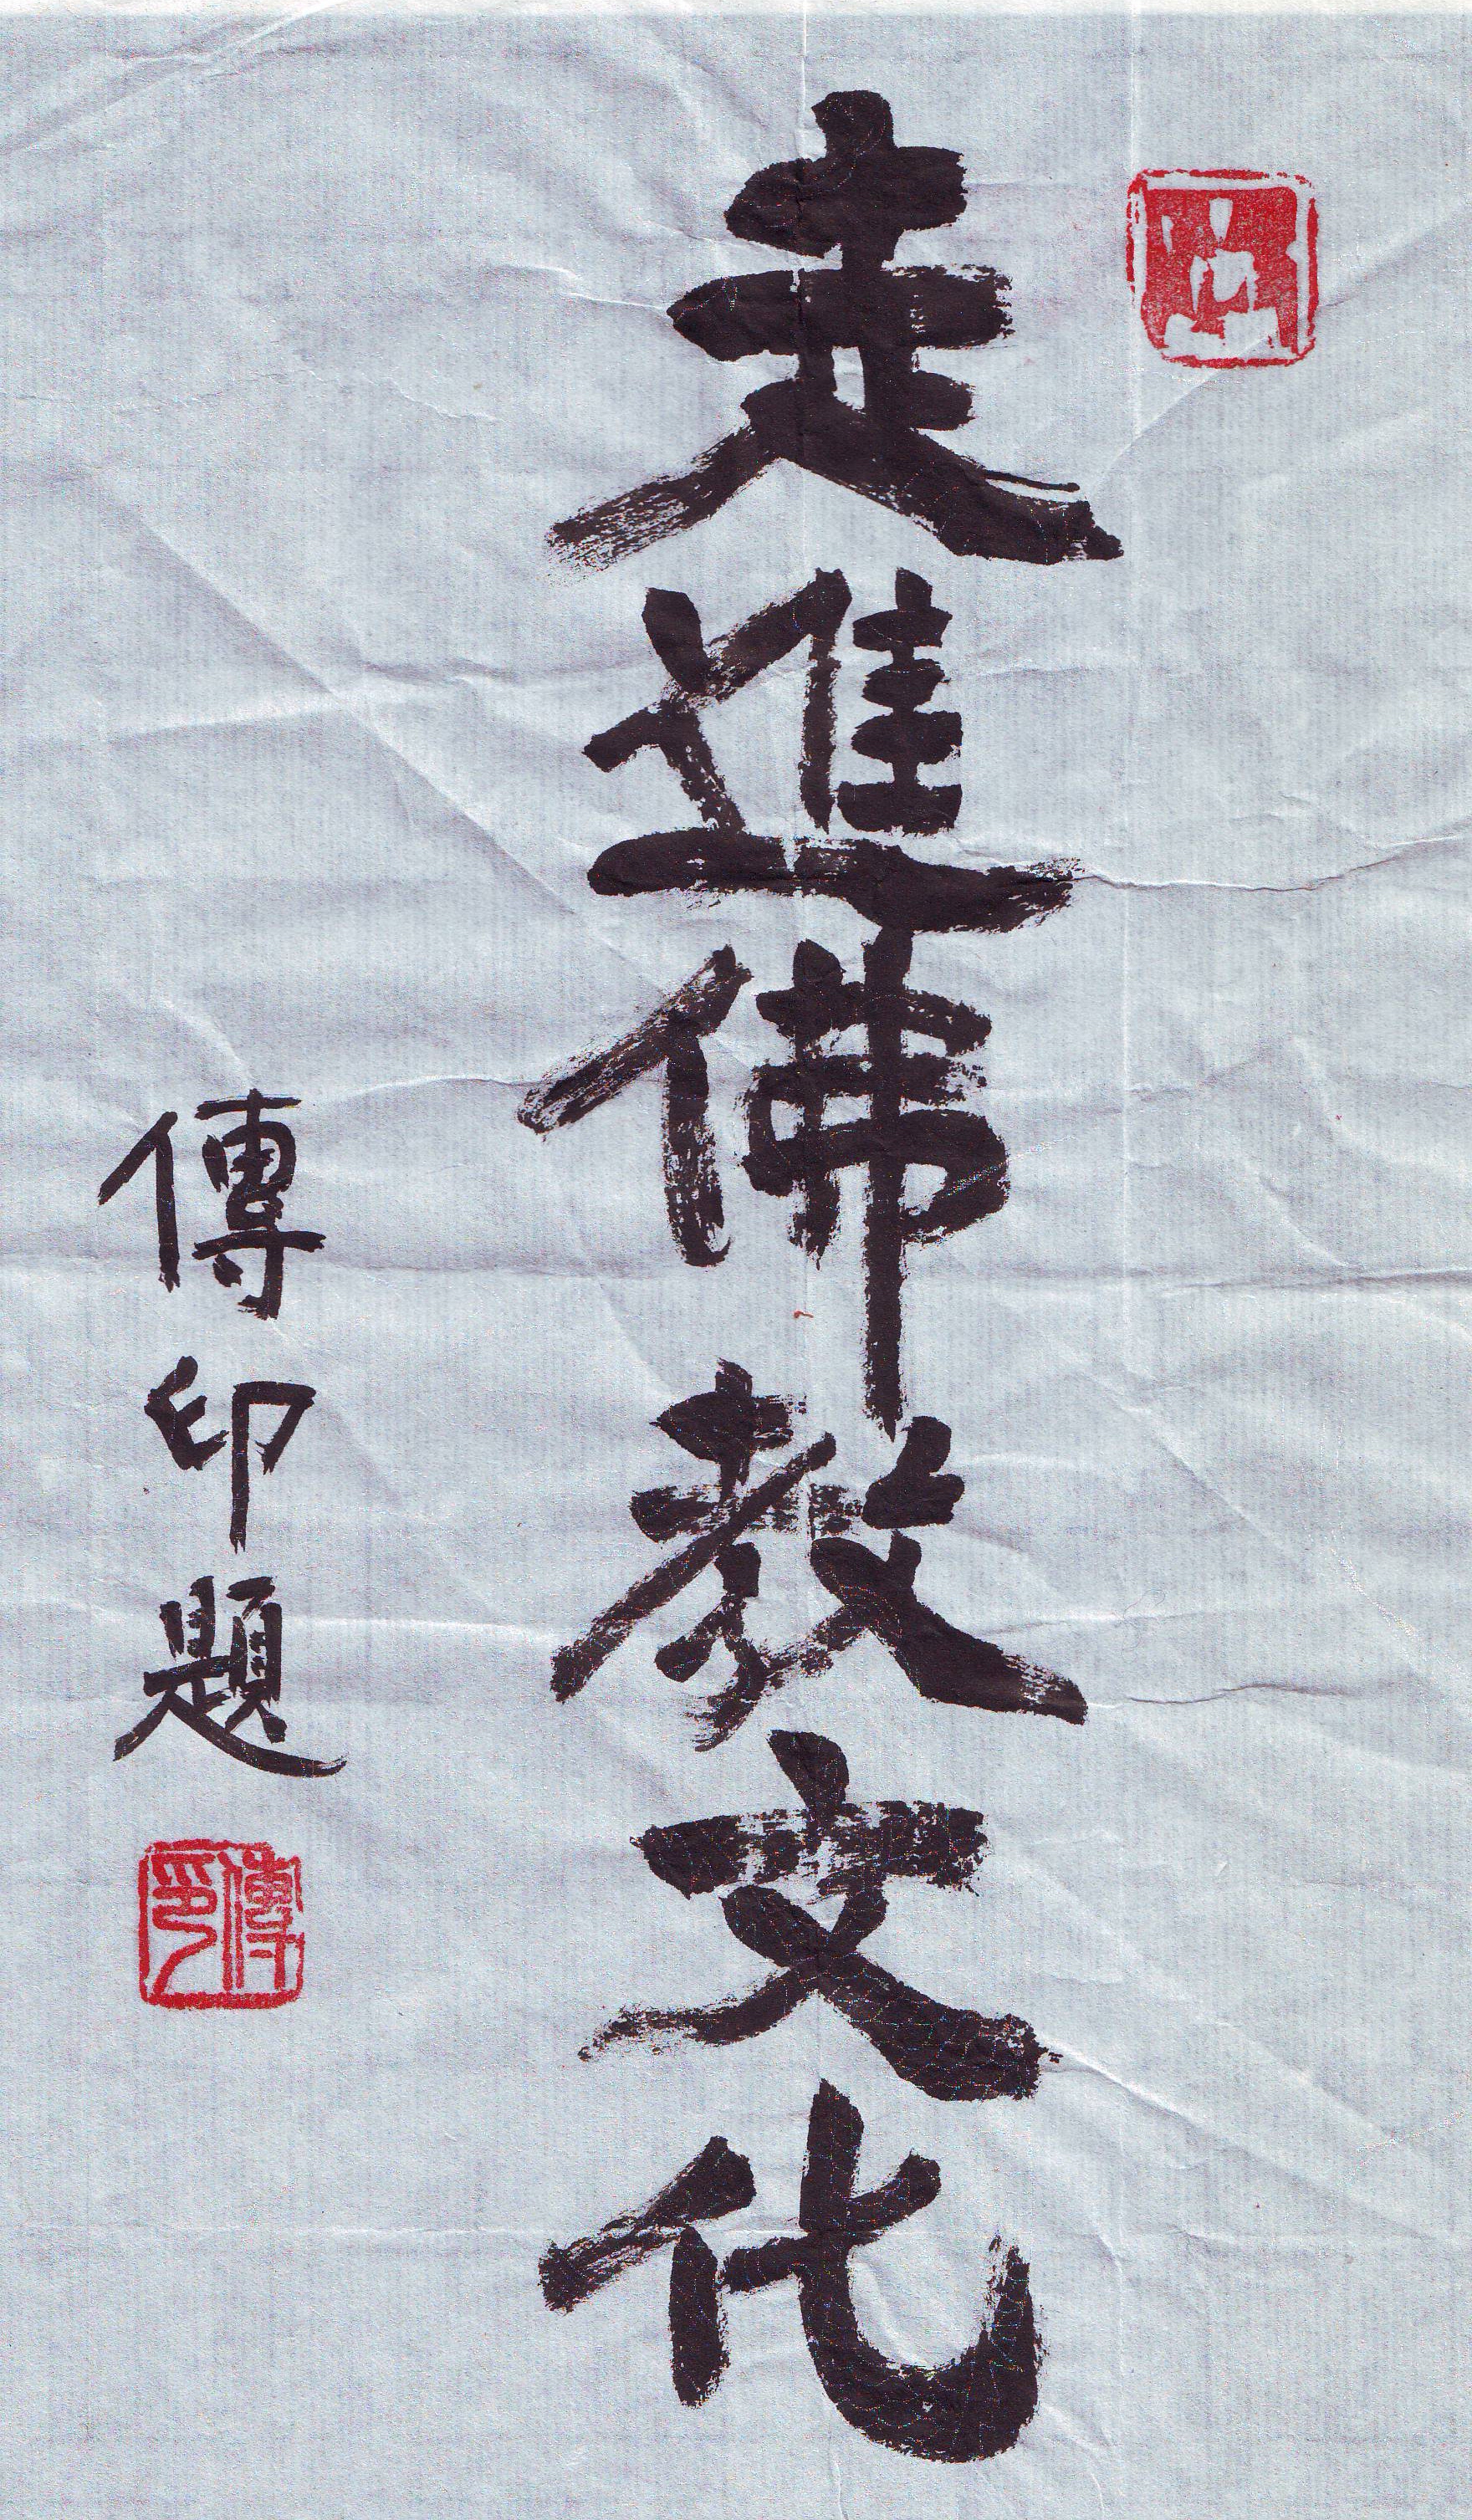 走進佛教文化
傳印題
傳印